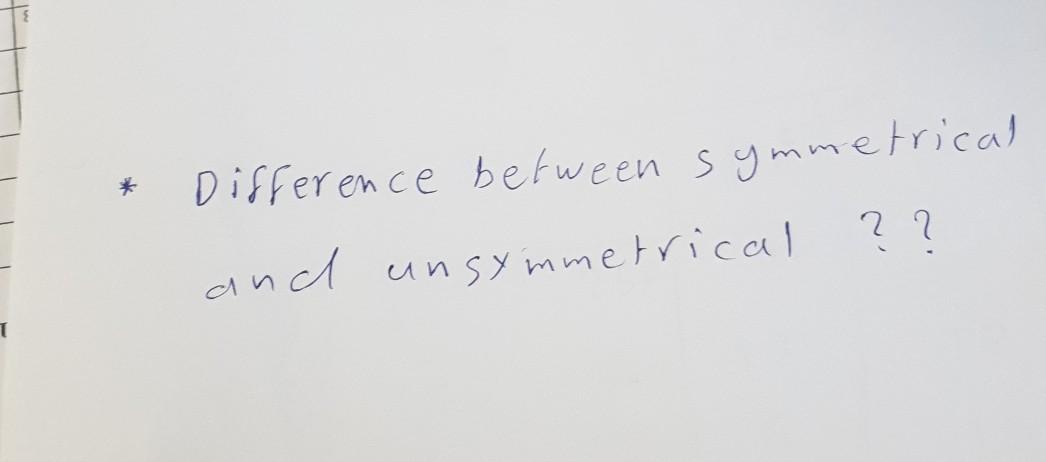 * Difference between symmetrical
and unsymmetrical ??